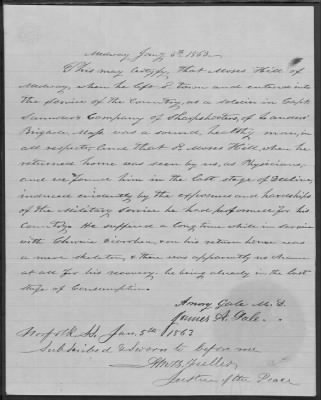 Medway Jany 5th 1863.
This may certify, that Moses Hill of
Medway, when he left S. town and entered into
the service of the Country, as a soldier in Capt.
Saunders Company of Sharpshooters, of Landers'
Brigade, Mass was a sound, healthy man, in
all respects; And that Sd. Moses Hill, when he
returned home was seen by us, as Physicians,
and we found him in the last stage of Decline,
induced evidently by the exposures and hardships
of the Military Service he had performed for his
Country. He suffered a long time while in service
with Chronic Diarrhea, & on his return home was
a mere skeleton, & there was apparently no chance
at all for his recovery, he being already in the last
stage of Consumption.
Amory Gale M.D.
James A. Dale.
Norfolk SS. Jan. 5th 1863
Subscribed & Sworn to before me
Fuller
Justice of the Peace